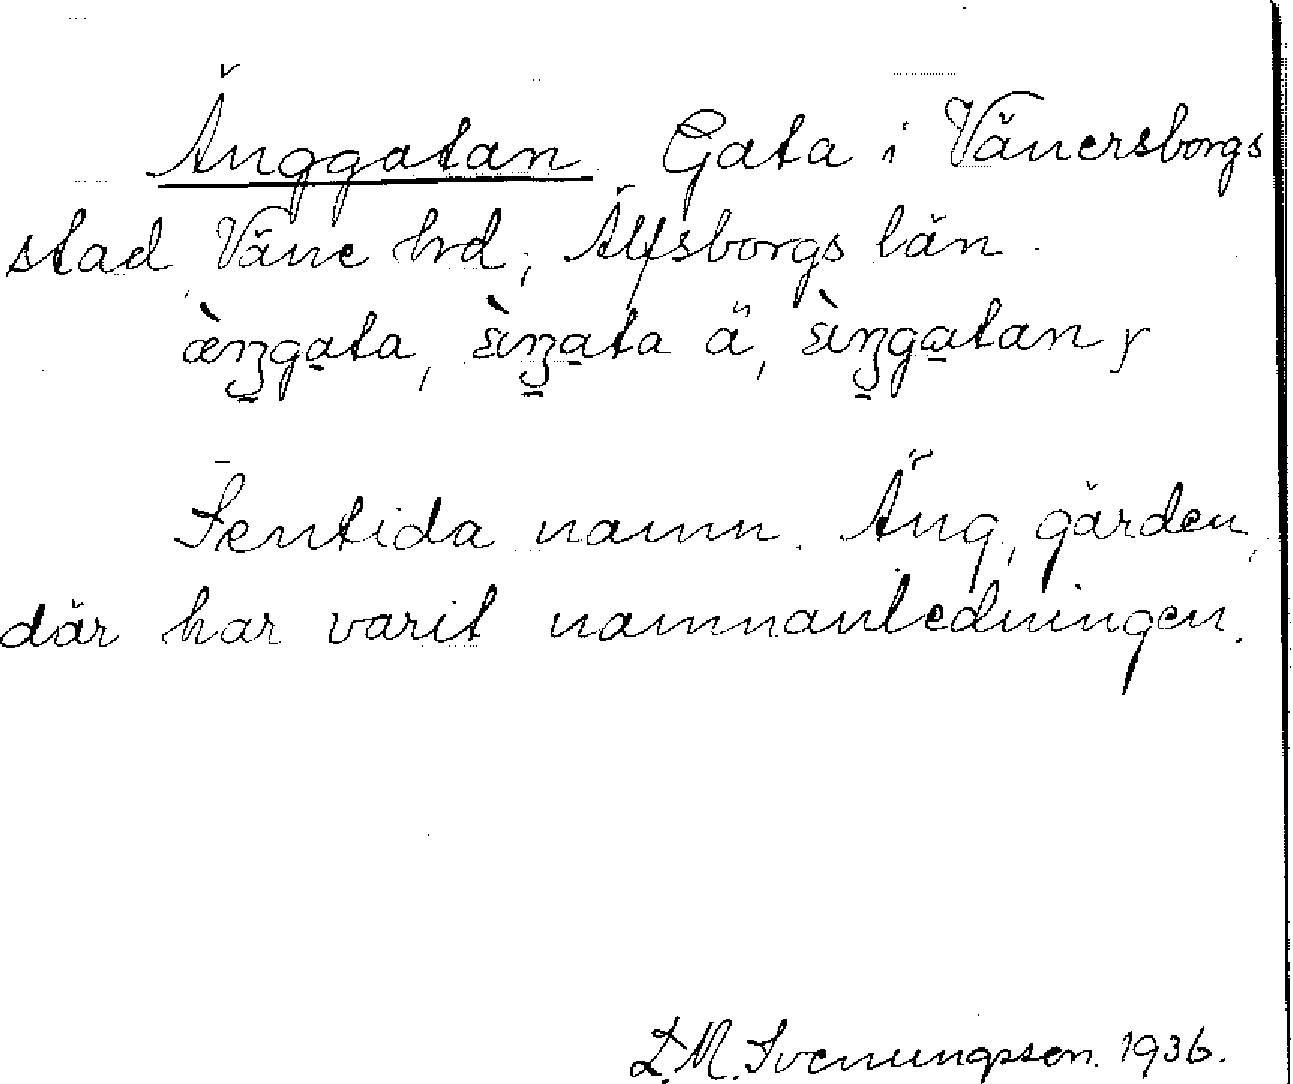 Änggatan. Gata i Vänersborgs
stad, Väne hrd, Älfsborgs län.
æ̀ŋga̱ta, ɛ̀ŋa̱ta ä, ɛ̀ŋga̱tan y
Sentida namn. Äng, gärden,
där har varit namnanledningen.
L.M. Svenungsson. 1936.